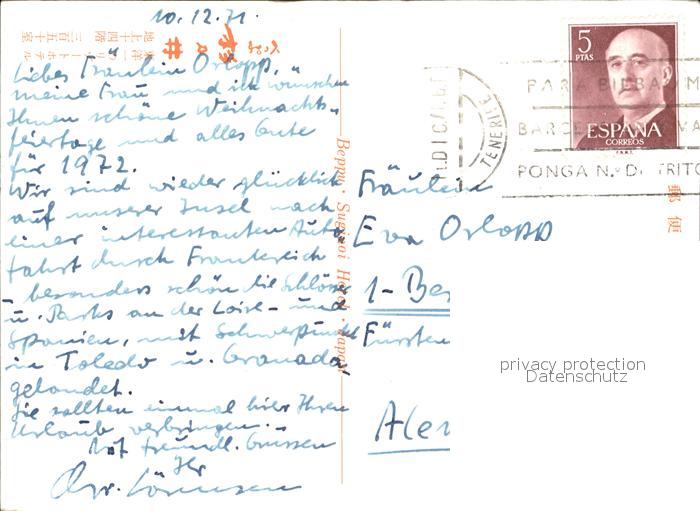 10.12.71.
Liebes Fräulein Orlopp,
meine Frau und ich wünschen
Ihnen schöne Weihnachts-
feiertage und alles Gute
für 1972.
Wir sind wieder glücklich
auf unserer Insel nach
einer interessanten Auto-
fahrt durch Frankreich
- besonders schön die Schlösser
u. Parks an der Loire - und
Spanien, mit Schwerpunkt
in Toledo u. Granada
gelandet.
Sie sollten einmal hier Ihren
Urlaub verbringen.-
Mit freundl. Grüssen
Ihr
Beppu, Suginoi Hotel, Japan
5
PTAS
ESPAÑA
CORREOS
TENERIFE
PARA
BARC
PONGA N.º DISTRITO
郵便
Fräulein
Eva Orlopp
1-Ber
Fürsten
Alem
privacy protection
Datenschutz